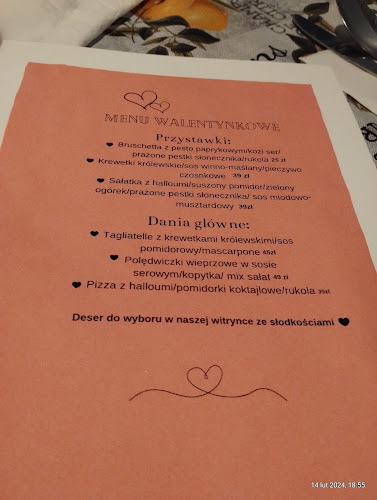 MENU WALENTYNKOWE
Przystawki:
Bruschetta z pesto paprykowym/kozi ser/
prażone pestki słonecznika/rukola 25 zł
Krewetki królewskie/sos winno-maślany/pieczywo
czosnkowe 39 zł
Sałatka z halloumi/suszony pomidor/zielony
ogórek/prażone pestki słonecznika/ sos miodowo-
musztardowy 39zł
Dania główne:
Tagliatelle z krewetkami królewskimi/sos
pomidorowy/mascarpone 45zł
Polędwiczki wieprzowe w sosie
serowym/kopytka/ mix sałat 49 zł
Pizza z halloumi/pomidorki koktajlowe/rukola 35zł
Deser do wyboru w naszej witrynce ze słodkościami
14 lut 2024, 18:55